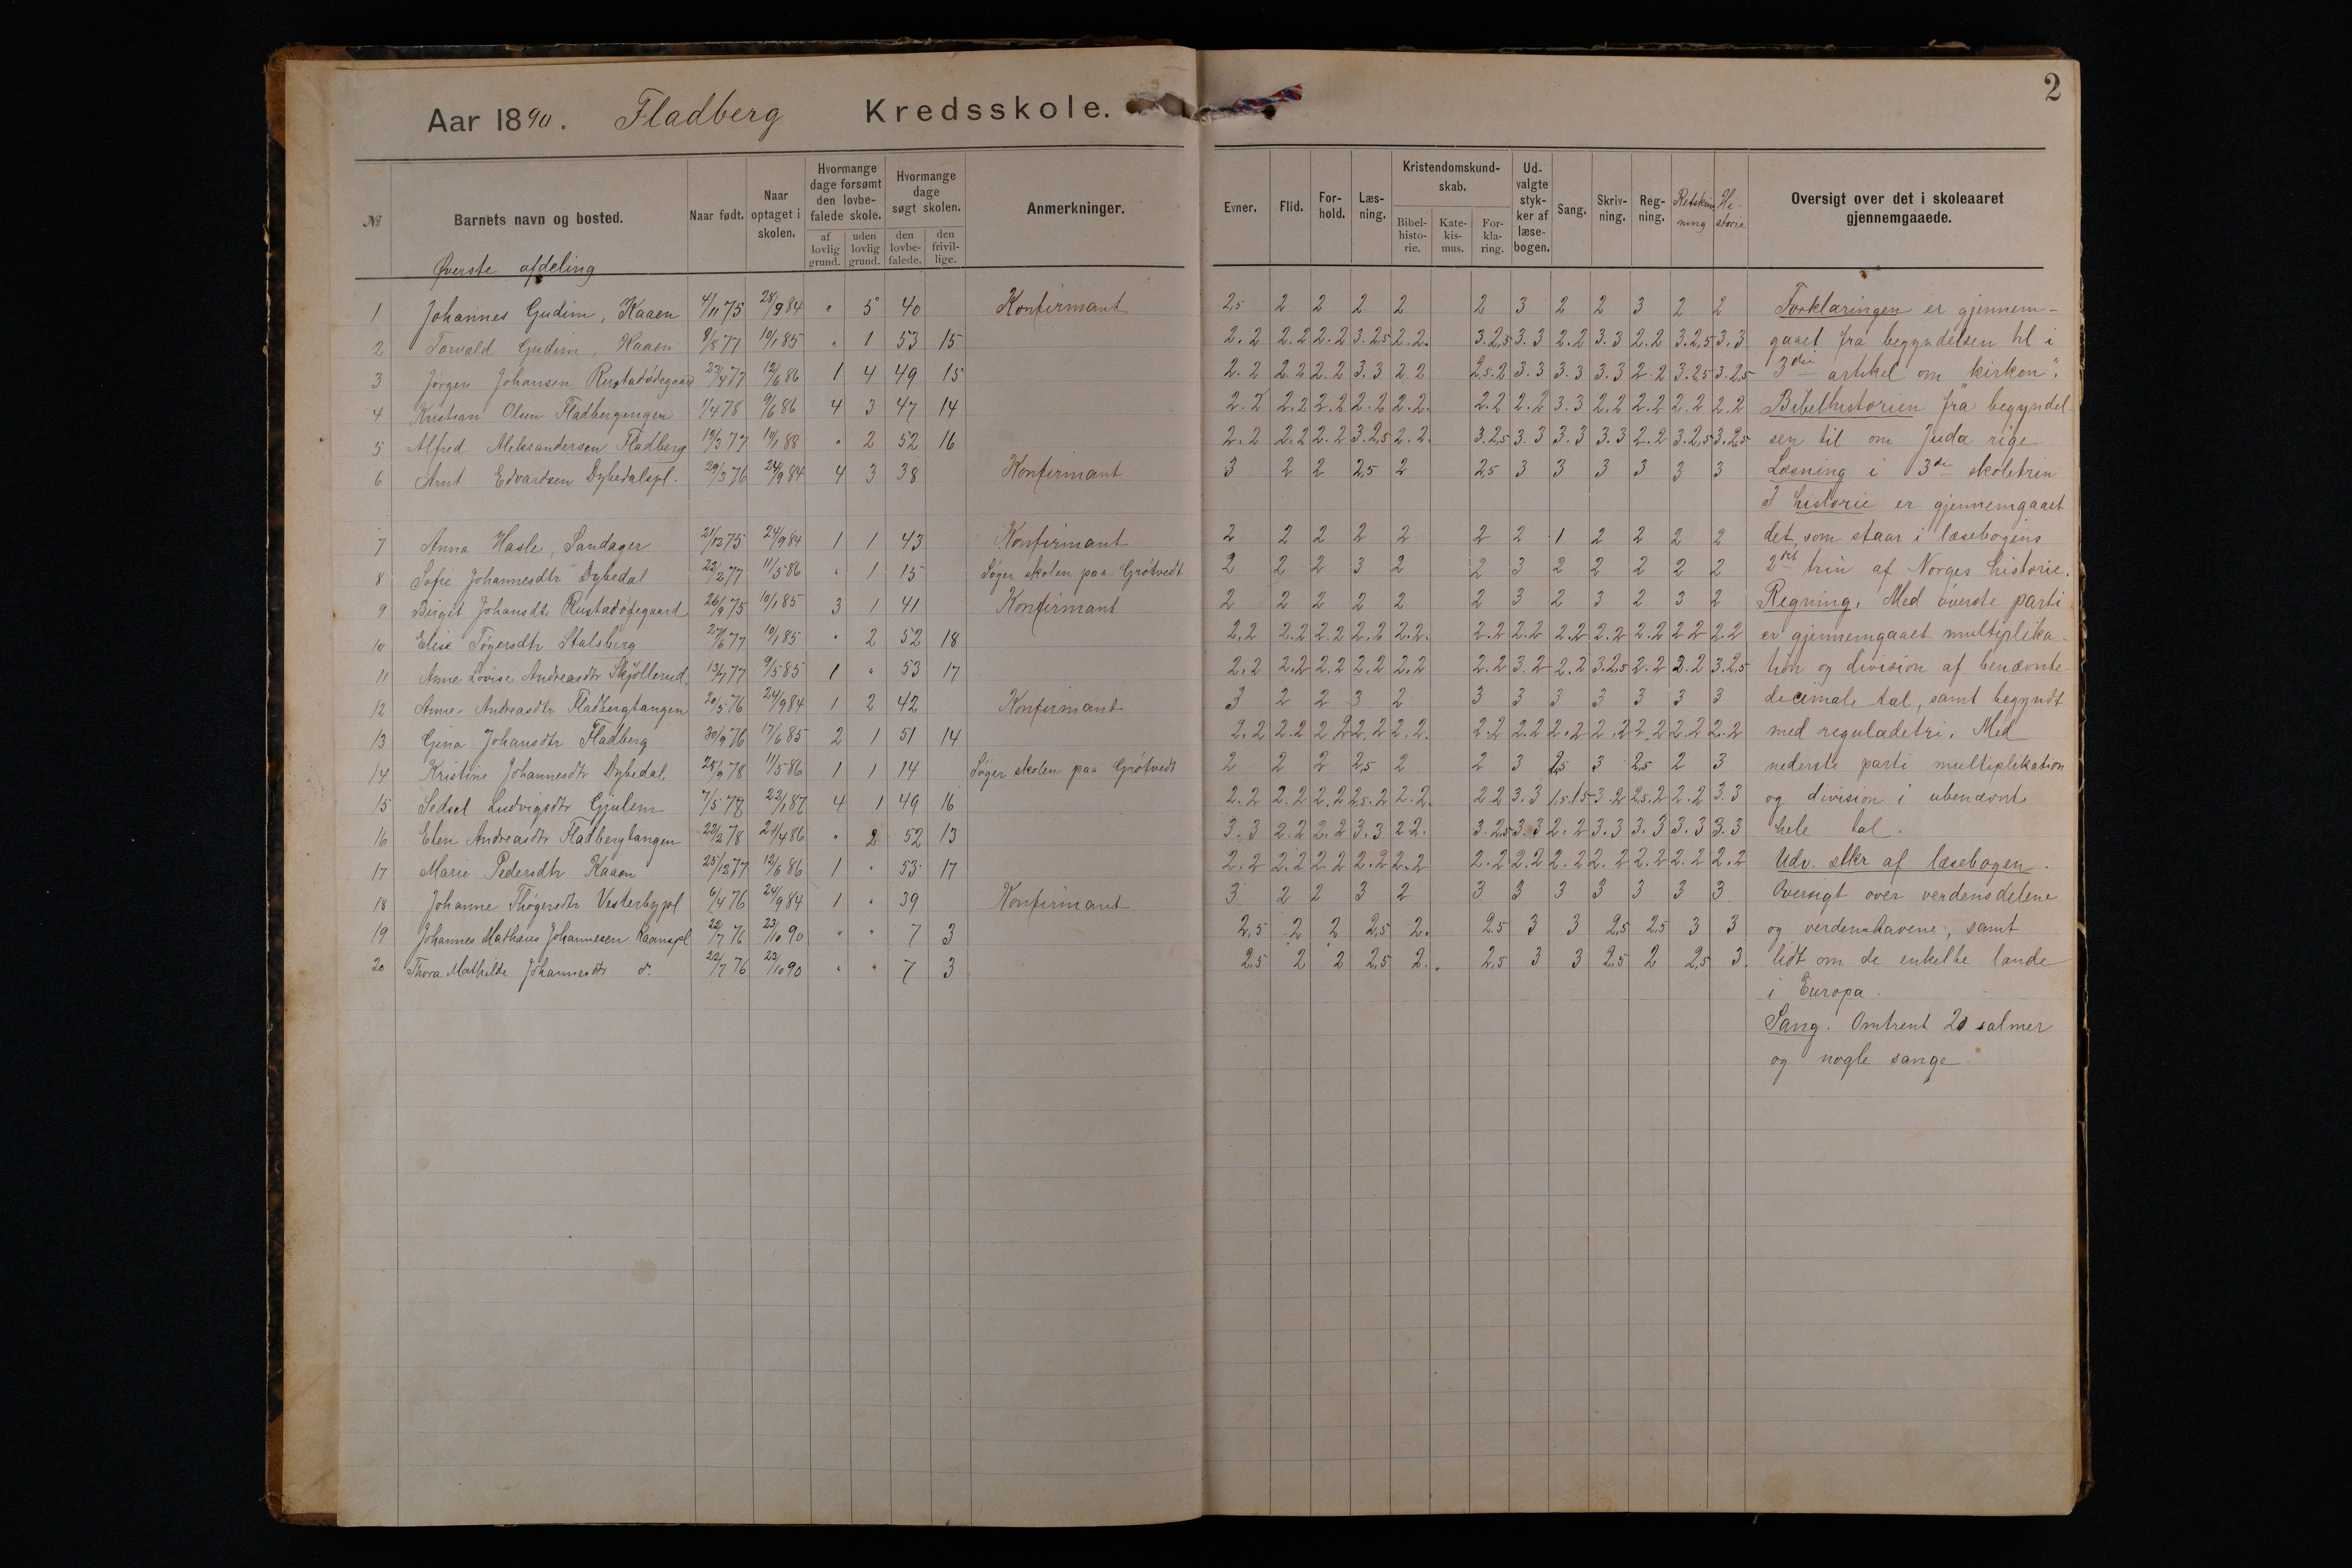 2
Aar 1890. Fladberg Kredsskole.
№ Barnets navn og bosted. Naar født. Naar optaget i skolen. Hvormange dage forsømt den lovbefalede skole. af lovlig grund. uden lovlig grund. Hvormange dage søgt skolen. den lovbefalede. den frivillige. Anmerkninger.
Evner. Flid. Forhold. Læsning. Kristendomskundskab. Bibelhistorie. Katekismus. Forklaring. Udvalgte stykker af læsebogen. Sang. Skrivning. Regning. Retskrivning Historie Oversigt over det i skoleaaret gjennemgaaede.
Øverste afdeling
1 Johannes Gudim, Kaaen 4/11 75 28/9 84 " 5 40 Konfirmant 2,5 2 2 2 2 2 3 2 2 3 2 2 Forklaringen er gjennem-
2 Torvald Gudim, Kaaen 9/8 77 10/1 85 " 1 53 15 2.2 2.2 2.2 3.2,5 2.2. 3.2,5 3.3 2.2 3.3 2.2 3.2,5 3.3 gaaet fra begyndelsen til i
3 Jørgen Johansen Rustadødegaard 23/4 77 12/6 86 1 4 49 15 2.2 2.2 2.2 3.3 2.2 2,5.2 3.3 3.3 3.3 2.2 3.2,5 3.2,5 3die artikel om "kirken".
4 Kristian Olsen Fladbergengen 1/4 78 9/6 86 4 3 47 14 2.2 2.2 2.2 2.2 2.2. 2.2 2.2 3.3 2.2 2.2 2.2 2.2 Bibelhistorien fra begyndel-
5 Alfred Aleksandersen Fladberg 19/3 77 10/1 88 " 2 52 16 2.2 2.2 2.2 3.2,5 2.2. 3.2,5 3.3 3.3 3.3 2.2 3.2,5 3.2,5 sen til om Juda rige
6 Arnt Edvardsen Dybedalspl. 29/3 76 24/9 84 4 3 38 Konfirmant 3 2 2 2,5 2 2,5 3 3 3 3 3 3 Læsning i 3die skoletrin
I historie er gjennemgaaet
7 Anna Hasle, Sandager 21/12 75 24/9 84 1 1 43 Konfirmant 2 2 2 2 2 2 2 1 2 2 2 2 det, som staar i læsebogens
8 Sofie Johannesdtr Dybedal 22/2 77 11/5 86 " 1 15 Søger skolen paa Grøtvedt 2 2 2 3 2 2 3 2 2 2 2 2 2det trin af Norges historie.
9 Birgit Johansdtr Rustadødegaard 26/9 75 10/1 85 3 1 41 Konfirmant 2 2 2 2 2 2 3 2 3 2 3 2 Regning. Med øverste parti
10 Elise Tøgersdtr Stalsberg 27/6 77 10/1 85 " 2 52 18 2.2 2.2 2.2 2.2 2.2. 2.2 2.2 2.2 2.2 2.2 2.2 2.2 er gjennemgaaet multiplika-
11 Anne Lovise Andreasdtr Skjøllerud 13/7 77 9/5 85 1 " 53 17 2.2 2.2 2.2 2.2 2.2 2.2 3.2 2.2 3.2,5 2.2 2.2 3.2,5 tion og division af benævnte
12 Anne Andreasdtr Fladbergtangen 20/5 76 24/9 84 1 2 42 Konfirmant 3 2 2 3 2 3 3 3 3 3 3 3 decimale tal, samt begyndt
13 Gina Johansdtr Fladberg 30/9 76 17/6 85 2 1 51 14 2.2 2.2 2.2 2.2 2.2. 2.2 2.2 2.2 2.2 2.2 2.2 2.2 med reguladetri. Med
14 Kristine Johannesdtr Dybedal 28/9 78 11/5 86 1 1 14 Søger skolen paa Grøtvedt 2 2 2 2,5 2 2 3 2,5 3 2,5 2 3 nederste parti multiplikation
15 Sedsel Ludvigsdtr Gjulem 7/5 78 22/1 87 4 1 49 16 2.2 2.2 2.2 2,5.2 2.2. 2.2 3.3 1,5.1,5 3.2 2,5.2 2.2 3.3 og division i ubenævnte
16 Elen Andreasdtr Fladbergtangen 22/2 78 21/4 86 " 2 52 13 3.3 2.2 2.2 3.3 2.2. 3.2,5 3.3 2.2 3.3 3.3 3.3 3.3 hele tal.
17 Marie Pedersdtr Kaaen 25/12 77 12/6 86 1 " 53 17 2.2 2.2 2.2 2.2 2.2 2.2 2.2 2.2 2.2 2.2 2.2 2.2 Udv. stkr af læsebogen.
18 Johanne Thøgersdtr Vesterbypl 6/4 76 24/9 84 1 " 39 Konfirmant 3 2 2 3 2 3 3 3 3 3 3 3. Oversigt over verdensdelene
19 Johannes Mathæus Johannesen Kaaenspl 22/7 76 23/10 90 " " 7 3 2,5 2 2 2,5 2. 2,5 3 3 2,5 2,5 3 3 og verdenshavene, samt
20 Thora Mathilde Johannesdtr do. 22/7 76 23/10 90 " " 7 3 2,5 2 2 2,5 2. 2,5 3 3 2,5 2 2,5 3. lidt om de enkelte lande
i Europa.
Sang. Omtrent 20 salmer
og nogle sange